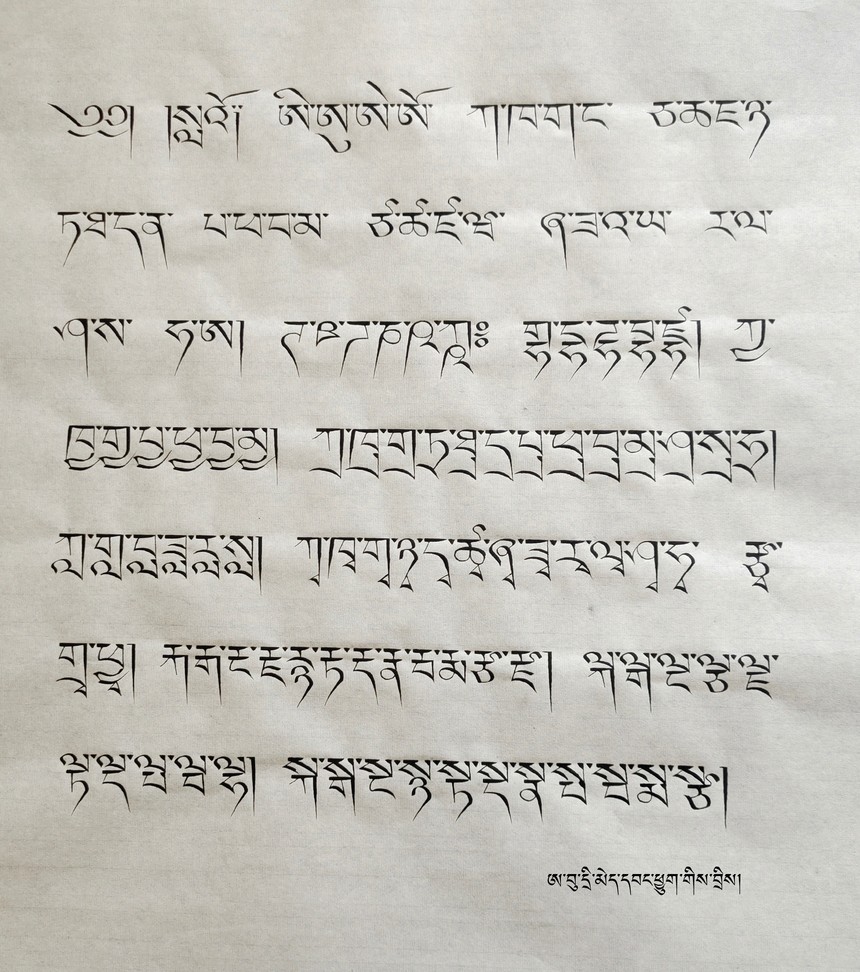 ༄༅། །སླའོ། ཨི་ཨུ་ཨེ་ཨོ ཀ་ཁ་ག་ང་ ཅ་ཆ་ཇ་ཉ་
ཏ་ཐ་ད་ན་ པ་ཕ་བ་མ་ ཙ་ཚ་ཛ་ཝ་ ཞ་ཟ་འ་ཡ་ ར་ལ་
ཤ་ས་ ཧ་ཨ། ཊ་ཋ་ཌ་ཎ་ཥ་ཀྵཿ གྷ་ཌྷ་དྷ་བྷ་ཛྷ། ཀྱ་
ཁྱ་གྱ་པྱ་ཕྱ་བྱ་མྱ། ཀྲ་ཁྲ་གྲ་ཏྲ་ཐྲ་དྲ་པྲ་ཕྲ་བྲ་མྲ་ཤྲ་སྲ་ཧྲ།
ཀླ་གླ་བླ་ཟླ་རླ་སླ། ཀྭ་ཁྭ་གྭ་ཉྭ་དྭ་ཚྭ་ཞྭ་ཟྭ་རྭ་ལྭ་ཤྭ་ཧྭ་ རྩྭ་
གྲྭ་ཕྱྭ། རྐ་རྒ་རྔ་རྗ་རྙ་རྟ་རྡ་རྣ་རྦ་རྨ་རྩ་རྫ། ལྐ་ལྒ་ལྔ་ལྕ་ལྗ་
ལྟ་ལྡ་ལྤ་ལྦ་ལྷ། སྐ་སྒ་སྔ་སྙ་སྟ་སྡ་སྣ་སྤ་སྦ་སྨ་སྩ།
ཨ་བུ་དྲི་མེད་དབང་ཕྱུག་གིས་བྲིས།